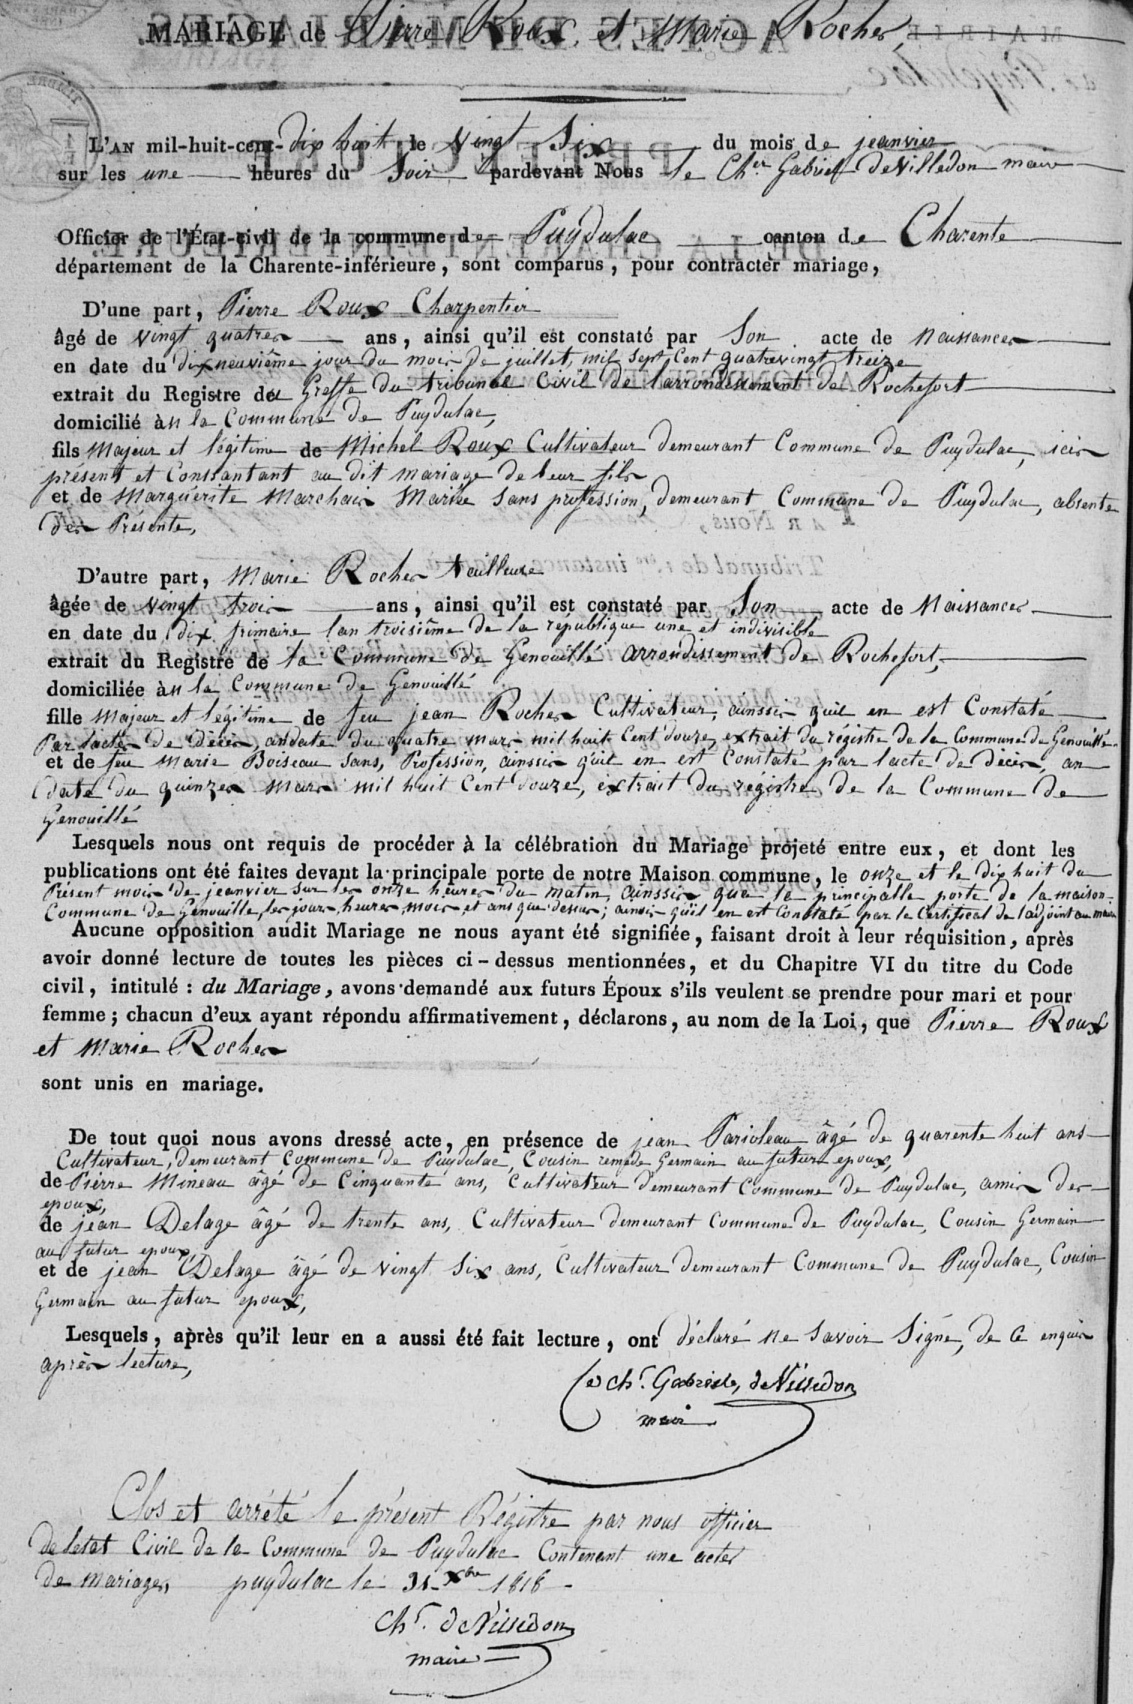 MARIAGE de Pierre Roux et Marie Rocher
L'AN mil-huit-cent-dix huit le vingt Six du mois de jeanvier
sur les une heures du Soir pardevant Nous le Ch.er Gabriel deVilledon maire
Officier de l'État-civil de la commune de Puydulac canton de Charente
département de la Charente-inférieure, sont comparus, pour contracter mariage,
D'une part, Pierre Roux Charpentier
âgé de vingt quatre ans, ainsi qu'il est constaté par Son acte de Naissance
en date du dix neuvième jour du mois de juillet, mil sept Cent quatrevingt treize
extrait du Registre du Greffe du tribunal Civil de l'arrondissement de Rochefort
domicilié àn la Commune de Puydulac,
fils Majeur et légitime de Michel Roux Cultivateur demeurant Commune de Puydulac, ici
présent et Consantant au dit mariage de leur fils
et de Marguerite Marchais Mariée Sans profession, demeurant Commune de Puydulac, absente
des Présente,
D'autre part, Marie Rocher tailleuse
âgée de vingt trois ans, ainsi qu'il est constaté par Son acte de Naissance
en date du dix frimaire l'an troisième de la république une et indivisible
extrait du Registre de la Commune de Genouillé arrondissement de Rochefort,
domiciliée àn la Commune de Genouillé
fille Majeur et légitime de feu jean Rocher Cultivateur, ainssi quil en est Constaté
Par lacte de décès, andate du quatre mars mil huit Cent douze, extrait du régistre de la Commune de Genouillé
et de feu Marie Boiseau Sans, Profession, ainssi quil en est Constaté par l'acte de décès, an
date du quinze Mars mil huit Cent douze, extrait du régistre de la Commune de
Genouillé
Lesquels nous ont requis de procéder à la célébration du Mariage projeté entre eux, et dont les
publications ont été faites devant la principale porte de notre Maison commune, le onze et le dix huit du
Présent mois de jeanvier sur les onze heures du matin, ainssi que la principalle porte de la maison
Commune de Genouille, les jours, heures, mois et ans que dessus; ainsi qu'il en est Constaté par le Certificat de l'adjoint au maire
Aucune opposition audit Mariage ne nous ayant été signifiée, faisant droit à leur réquisition, après
avoir donné lecture de toutes les pièces ci-dessus mentionnées, et du Chapitre VI du titre du Code
civil, intitulé : du Mariage, avons demandé aux futurs Époux s'ils veulent se prendre pour mari et pour
femme ; chacun d'eux ayant répondu affirmativement, déclarons, au nom de la Loi, que Pierre Roux
et Marie Rocher
sont unis en mariage.
De tout quoi nous avons dressé acte, en présence de jean Parioleau âgé de quarente huit ans
Cultivateur, demeurant Commune de Puydulac, Cousin remede Germain au futur epoux,
de Pierre Mineau âgé de Cinquante ans, Cultivateur demeurant Commune de Puydulac, amis des
epoux,
de jean Delage âgé de trente ans, Cultivateur demeurant Commune de Puydulac, Cousin Germain
au futur epoux
et de jean Delage âgé de vingt Six ans, Cultivateur demeurant Commune de Puydulac, Cousin
Germain au futur epoux,
Lesquels, après qu'il leur en a aussi été fait lecture, ont déclaré ne Savoir Signé, de Ce enquis
après lecture,
Le ch.r Gabriele, deVilledon
maire
Clos et arrété le présent Régistre par nous officier
de letat Civil de la Commune de Puydulac Contenant une acte
de mariage, puydulac le 31 Xbre 1818
Ch.r deVilledon
maire